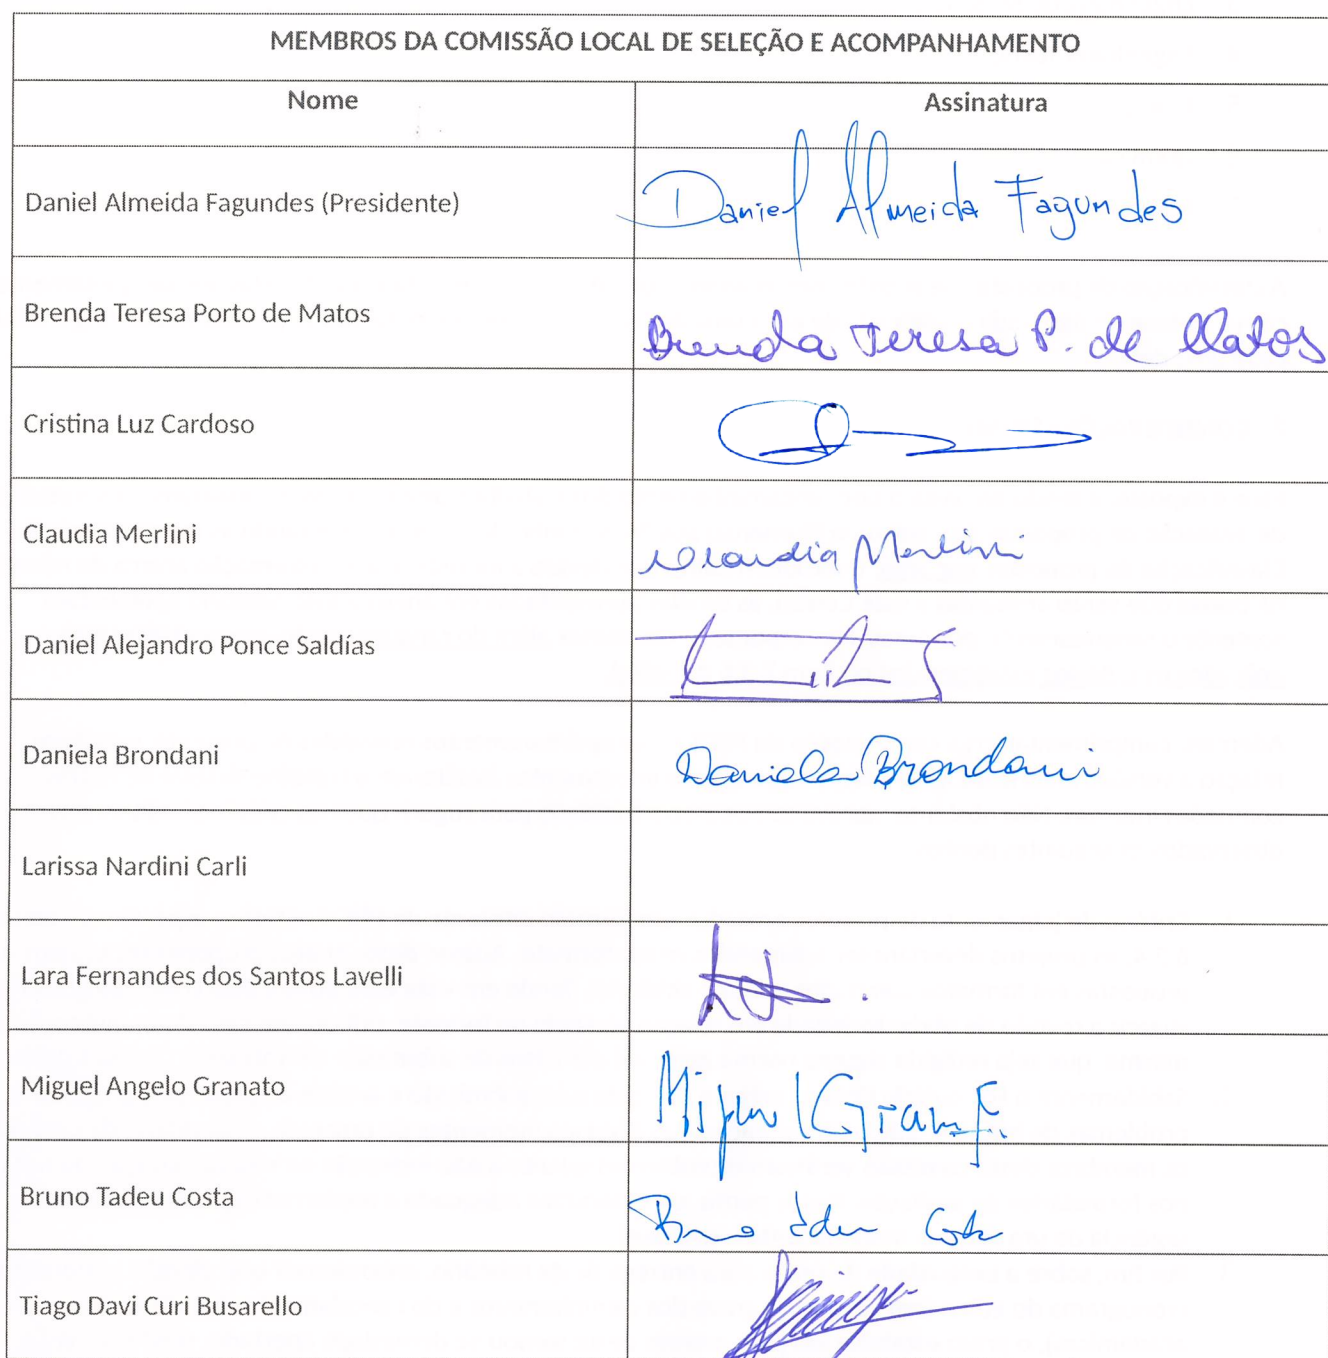 MEMBROS DA COMISSÃO LOCAL DE SELEÇÃO E ACOMPANHAMENTO
Nome Assinatura
Daniel Almeida Fagundes (Presidente) Daniel Almeida Fagundes
Brenda Teresa Porto de Matos Brenda Teresa P. de Matos
Cristina Luz Cardoso
Claudia Merlini Claudia Merlini
Daniel Alejandro Ponce Saldías
Daniela Brondani Daniela Brondani
Larissa Nardini Carli
Lara Fernandes dos Santos Lavelli
Miguel Angelo Granato Miguel
Bruno Tadeu Costa Bruno Tadeu Costa
Tiago Davi Curi Busarello